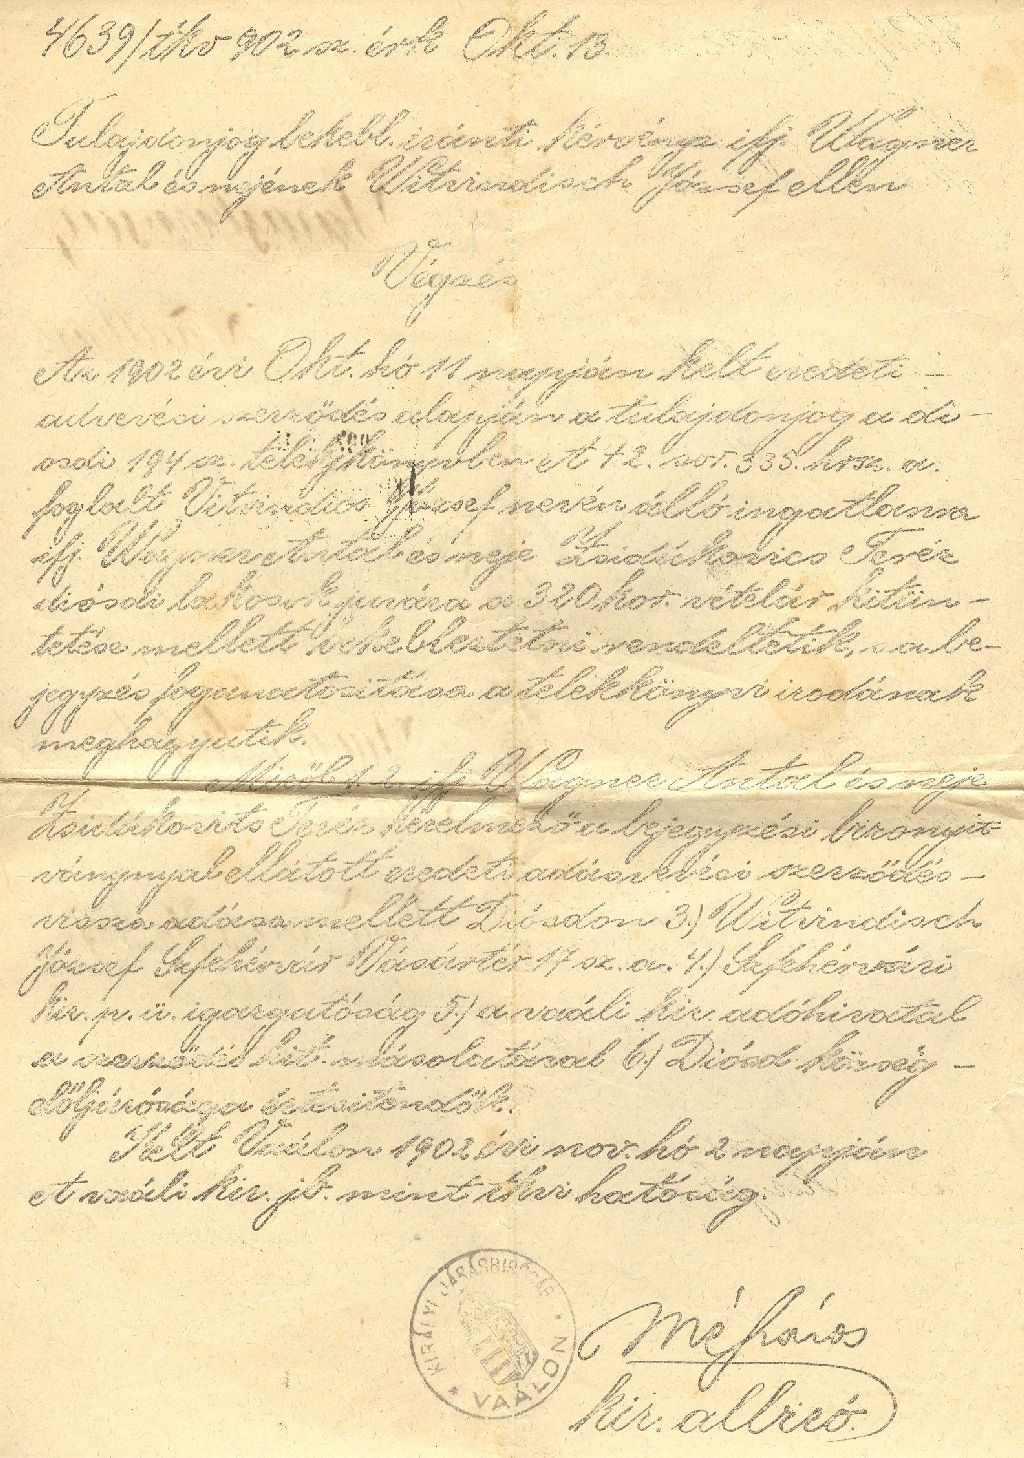 4639/tkv 902 sz. érk Okt. 13.
Tulajdonjog bekebl. iránti kérvénye ifj. Wagner
Antal és nejének Witvindisch József ellen
Végzés
Az 1902 évi Okt. hó 11 napján kelt eredeti -
advevési szerződés alapján a tulajdonjog a di-
osdi 194 sz. telekjkönyvben A + 2. sor. 335. hrsz. a.
foglalt Vitvindics József nevén álló ingatlanra
ifj. Wagner Antal és neje Zsidákovics Teréz
diósdi lakosok javára a 320 kor. vételár kitün-
tetése mellett bekebleztetni rendeltetik, s a be-
jegyzés foganatositása a telekkönyvi irodának
meghagyatik.
Miről 1. 2 ifj. Wagner Antal és neje
Zsidákovits Teréz kérelmező a bejegyzési bizonyit-
ványnyal ellátott eredeti adásvevési szerződés -
vissza adása mellett Diósdon 3.) Witvindisch
József Szfehérvár Vásártér 17 sz. a. 4.) Szfehérvári
kir. p. ü. igazgatóság 5.) a vaáli kir. adóhivatal
a szerződés kit. másolatával 6.) Diósd község -
előljárósága értesitendők.
Kelt Vaálon 1902 évi nov. hó 2 napján
A vaáli kir. jb. mint tkvi hatóság.
KIRÁLYI JÁRÁSBIRÓSÁG
VAÁLON
kir. albiró.